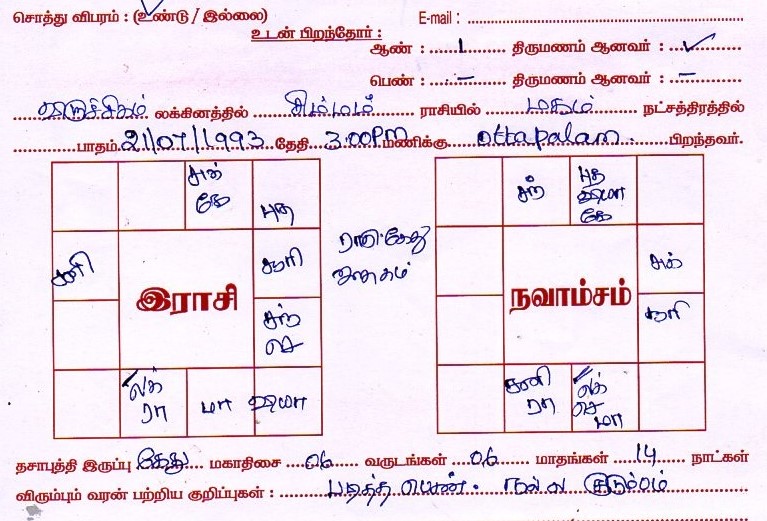 சொத்து விபரம் : (உண்டு / இல்லை) E-mail :
உடன் பிறந்தோர் :
ஆண் : 1 திருமணம் ஆனவர் : ✓
பெண் : – திருமணம் ஆனவர் : –
லக்கினத்தில் சிம்மம் ராசியில் மகம் நட்சத்திரத்தில்
பாதம் 21/07/1993 தேதி 3.00PM மணிக்கு Ottapalam. பிறந்தவர்.
சுக் கே
புத
சனி
சூரி
இராசி
சந் செ
லக் ரா
மா
வியா
ராகு கேது
ஜாதகம்
சந்
புத வியா கே
சுக்
நவாம்சம்
சூரி
சனி ரா
லக் செ மா
தசாபுத்தி இருப்பு கேது மகாதிசை 06 வருடங்கள் 06 மாதங்கள் 14 நாட்கள்
விரும்பும் வரன் பற்றிய குறிப்புகள் : படித்த பெண். நல்ல குடும்பம்